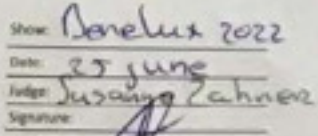 Show: Benelux 2022
Date: 25 june
Judge: Susanne Zahner
Signature: